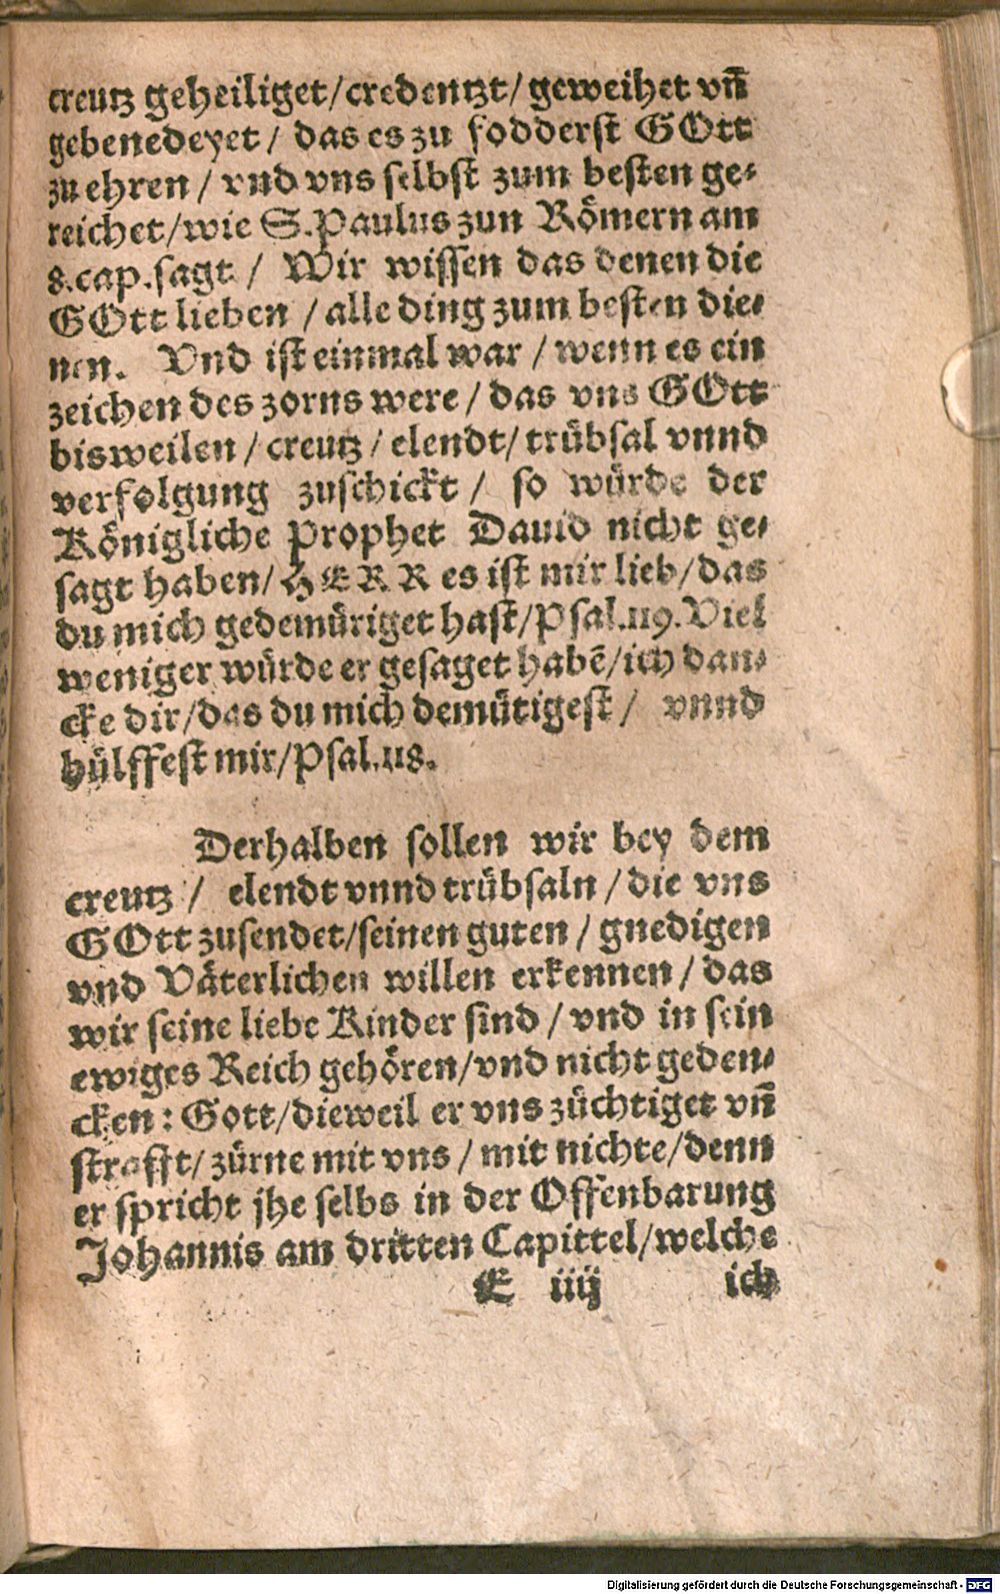 creutz geheiliget/credentzt/geweihet vn̄
gebenedeyet / das es zu fodderst GOtt
zu ehren / vnd vns selbst zum besten ge⸗
reichet/wie S.Paulus zun Römern am
8.cap.sagt / Wir wissen das denen die
GOtt lieben / alle ding zum besten die⸗
nen. Vnd ist einmal war / wenn es ein
zeichen des zorns were / das vns GOtt
bisweilen / creutz / elendt/ trübsal vnnd
verfolgung zuschickt / so würde der
Königliche Prophet Dauid nicht ge⸗
sagt haben/ HERR es ist mir lieb/das
du mich gedemüriget hast/Psal.119.Viel
weniger würde er gesaget habē/ich dan⸗
cke dir/das du mich demütigest / vnnd
hülffest mir/Psal.118.
Derhalben sollen wir bey dem
creutz / elendt vnnd trübsaln / die vns
GOtt zusendet/seinen guten / gnedigen
vnd Väterlichen willen erkennen / das
wir seine liebe Kinder sind / vnd in sein
ewiges Reich gehören/vnd nicht geden⸗
cken: Gott/dieweil er vns züchtiget vn̄
strafft/ zürne mit vns / mit nichte/denn
er spricht jhe selbs in der Offenbarung
Johannis am dritten Capittel/welche
E iiij ich
Digitalisierung gefördert durch die Deutsche Forschungsgemeinschaft - DFG